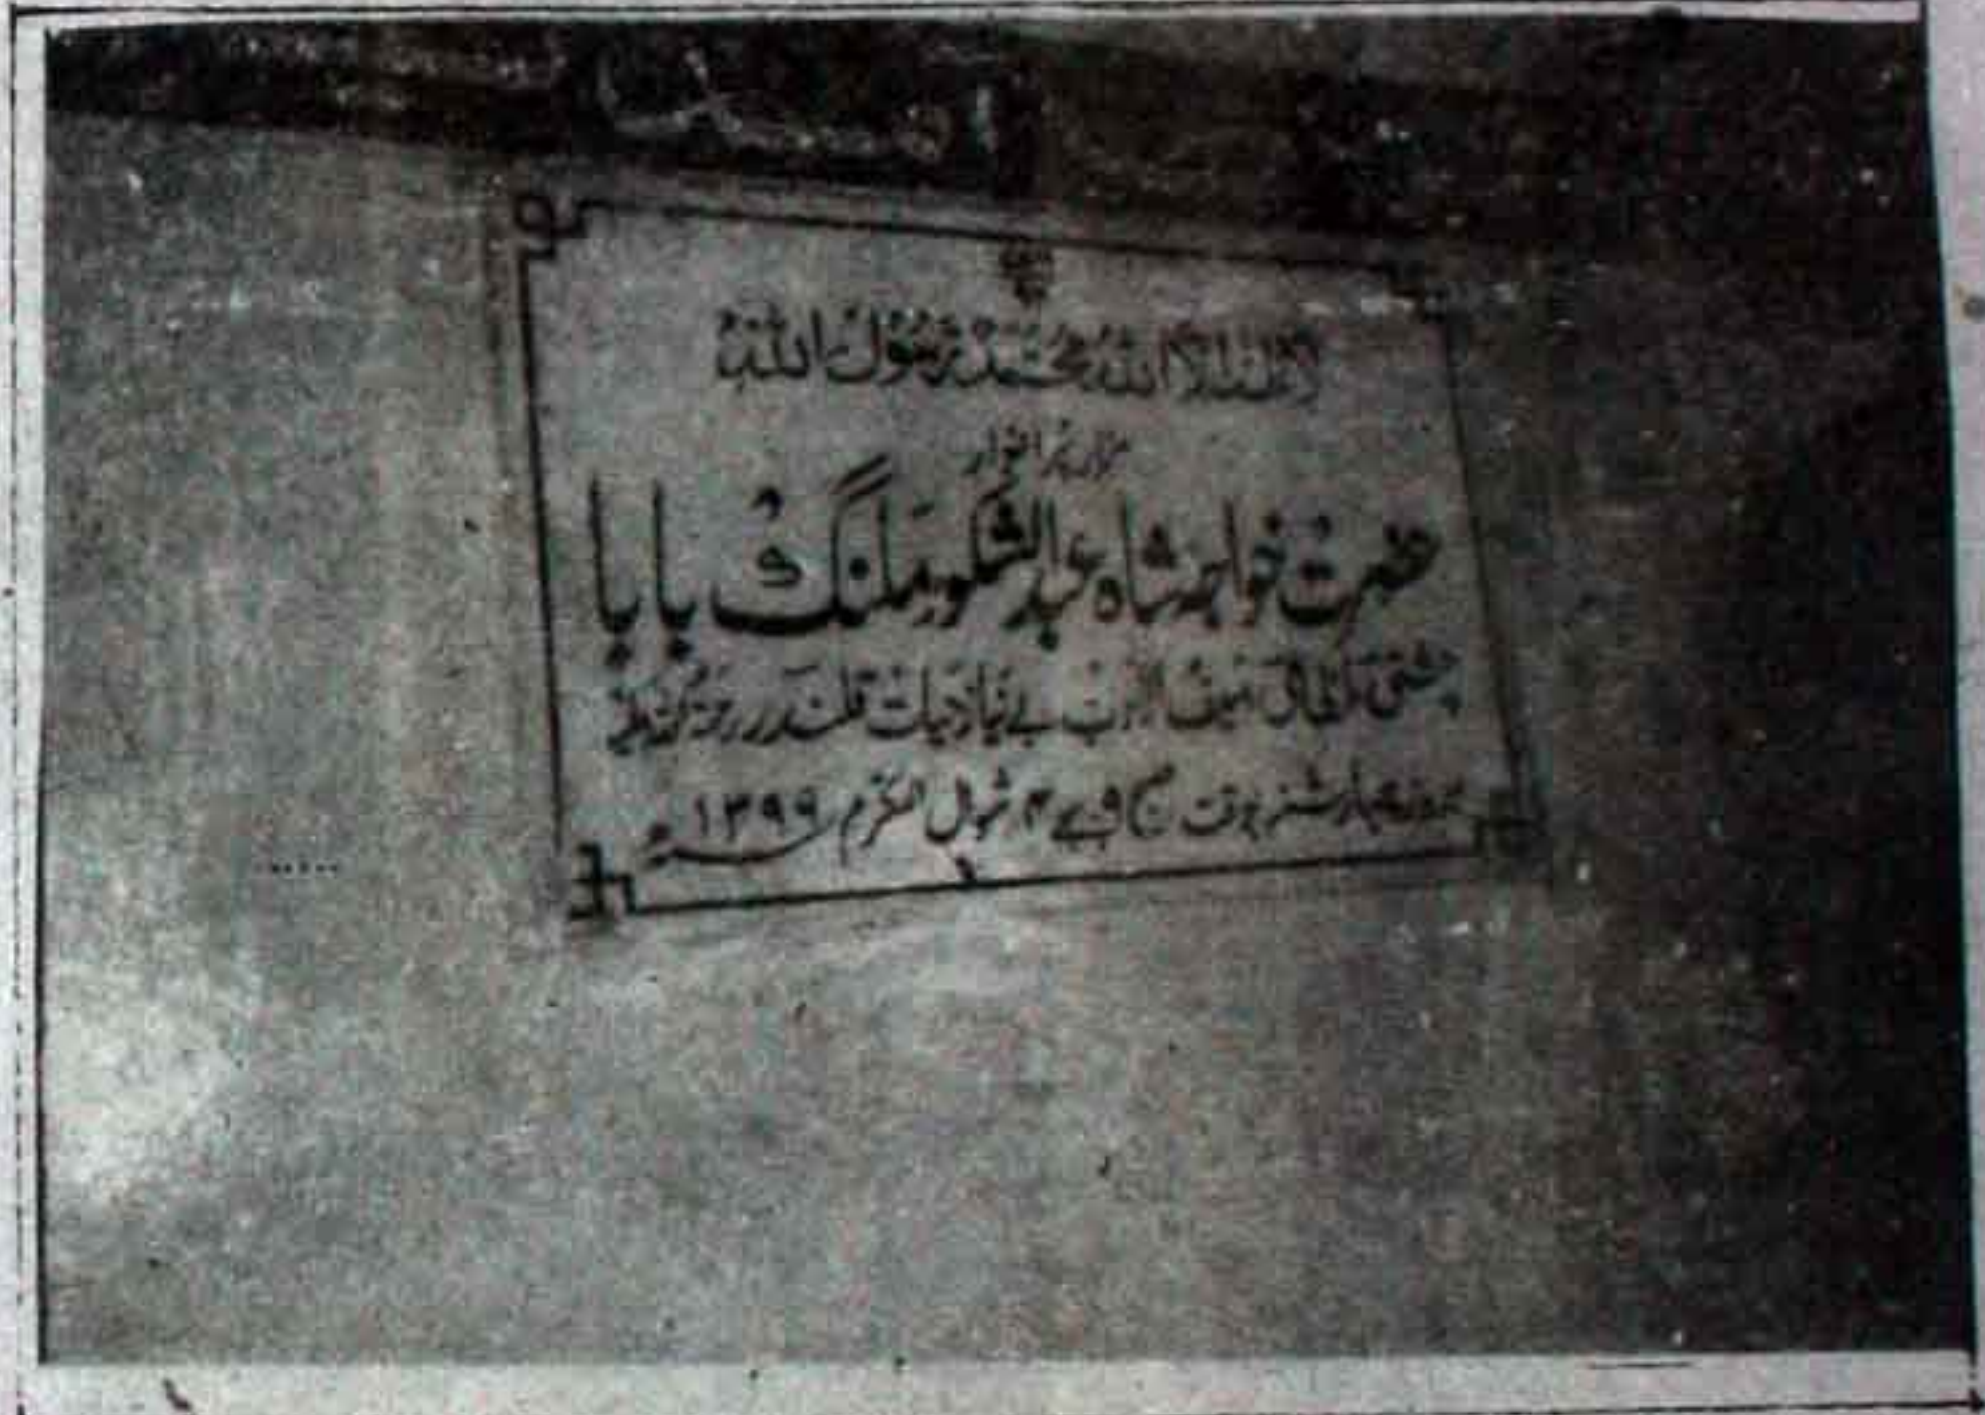 لا اله الا الله محمد رسول الله
مزار پر انوار
حضرت خواجہ شاہ عبد الشکور ملنگ بابا
چشتی نظامی سیف بے نیاز حیات قلندر رحمۃ اللہ علیہ
بروز چہار شنبہ بوقت صبح ۹ بجے ۴ شوال المکرم ۱۳۹۹ھ